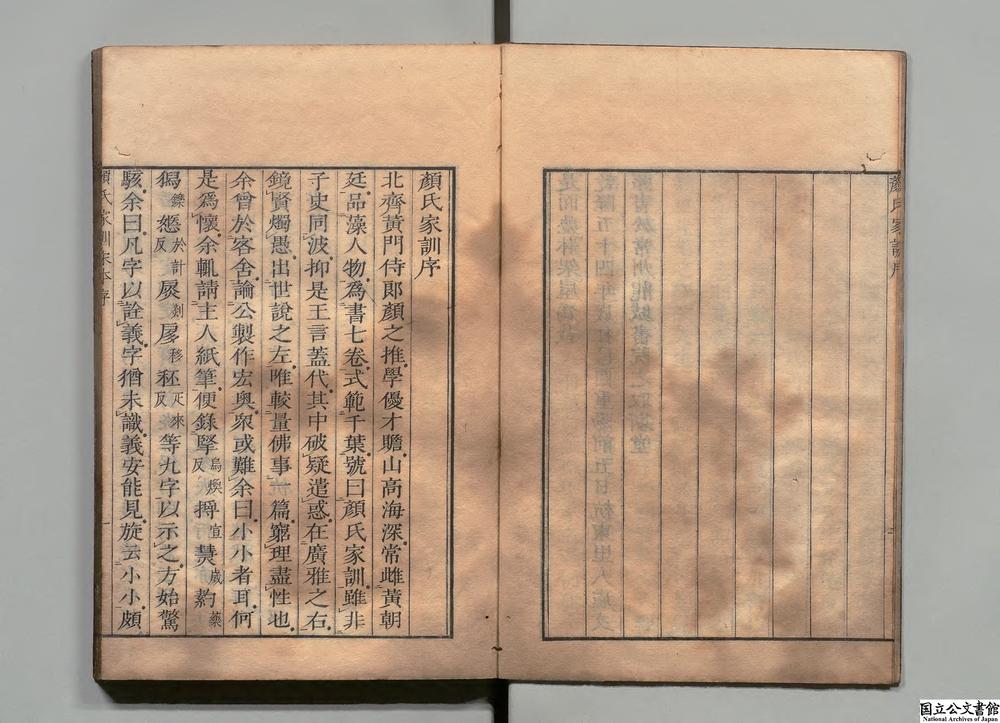 顏氏家訓序
顏氏家訓序
北齊黃門侍郞顏之推學優才贍山高海深常雌黃朝
廷品藻人物爲書七卷式範千葉號曰顏氏家訓雖非
子史同波抑是王言蓋代其中破疑遣惑在廣雅之右
鏡賢燭愚出世說之左唯較量佛事一篇窮理盡性也
余曾於客舍論公製作宏奥衆或難余曰小小者耳何
是爲懷余輒請主人紙筆便錄掔烏煥反𢷎宣熭歲䒸藥
獡鑠㥣於計反㞡剡㞕移秠疋來反等九字以示之方始驚
駭余曰凡字以詮義字猶未識義安能見旋云小小頗
顏氏家訓宋本序
一
国立公文書館
National Archives of Japan